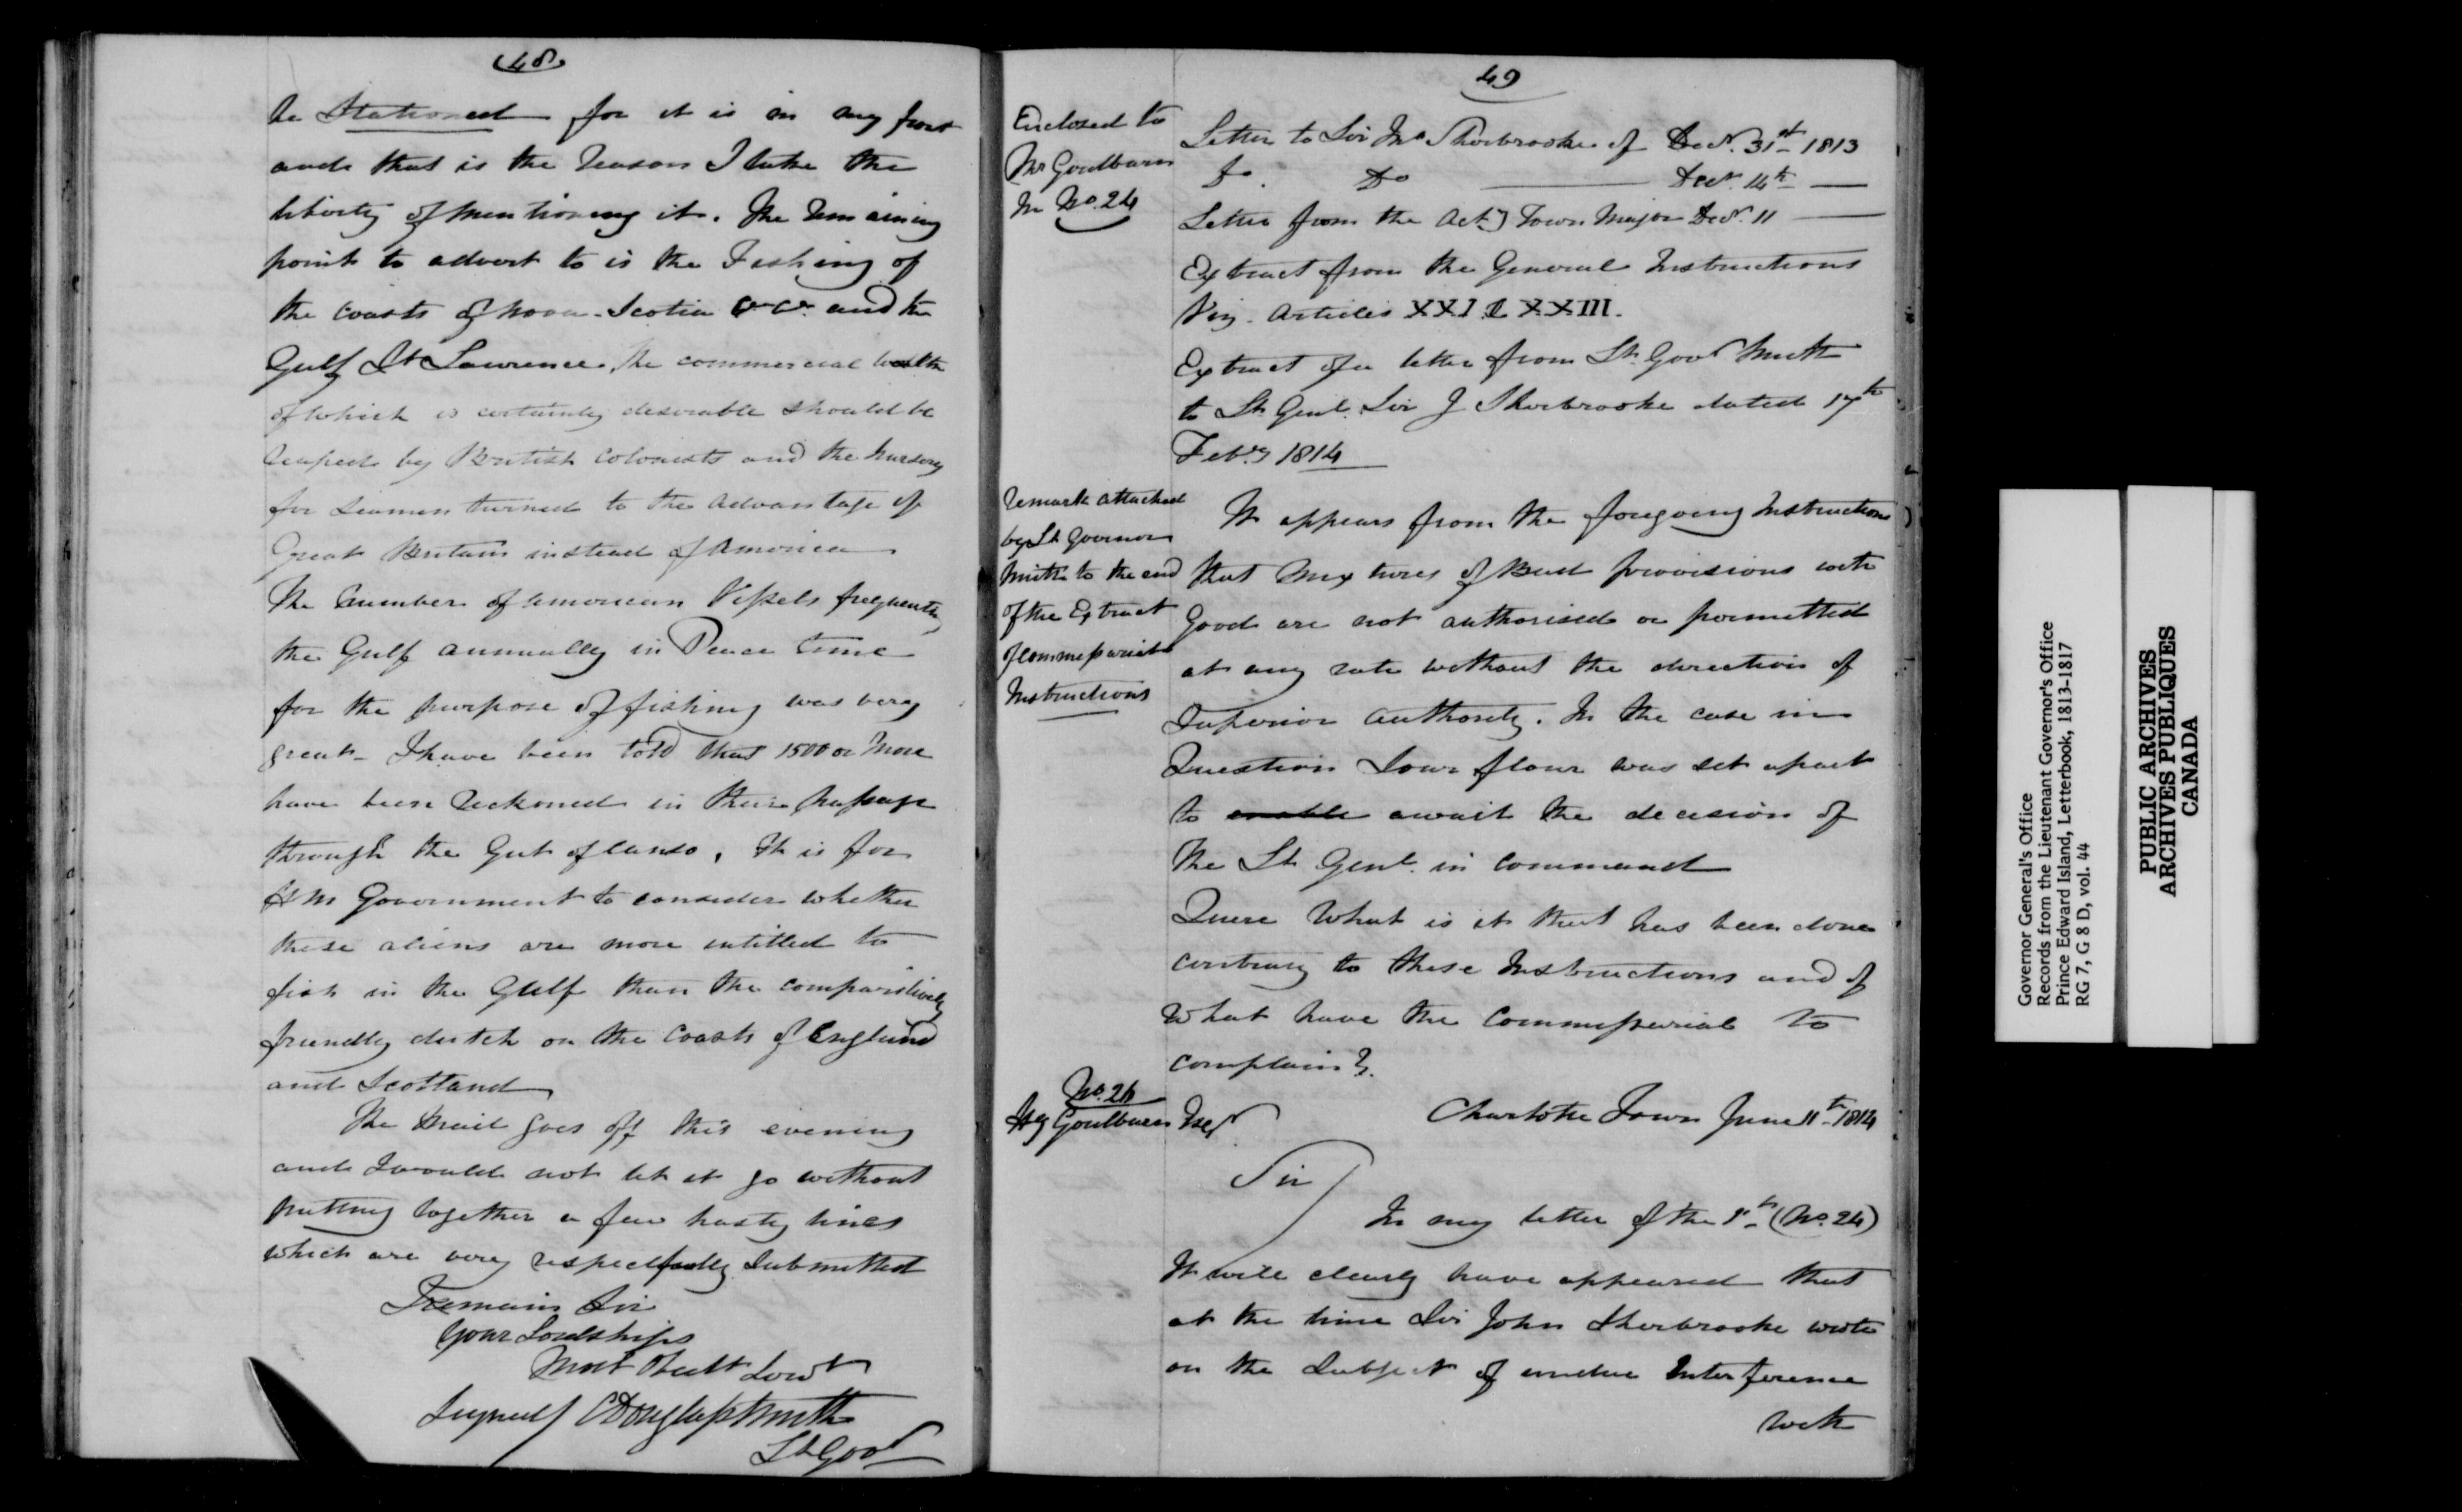 48
be Stationed for it is in my front
and that is the reason I take the
liberty of mentioning it. The remaining
point to advert to is the Fishing of
the coasts of Nova-Scotia &c &c. and the
Gulf St Lawrence. The commercial wealth
of which is certainly desirable should be
reaped by British Colonists and the Nursery
for Seamen turned to the advantage of
Great Britain instead of America
The Number of American Vessels frequenting
the Gulf annually in Peace time
for the purpose of fishing was very
great - I have been told that 1500 or More
have been reckoned in their passage
through the Gut of Canso, It is for
H M Government to consider whether
these aliens are more intitled to
fish in the Gulf than the comparitively
friendly dutch on the Coasts of England
and Scotland
The Mail goes off this evening
and I would not let it go without
putting together a few hasty lines
which are very respectfully Submitted
I remain Sir
Your Lordships
Most Obedt Servt
Signed/ C Douglass Smith
Lt Govr
49
Enclosed to
Mr Goulburn
In No. 24
Letter to Sir Jno Sherbrooke of Decr. 31st 1813
Do. Do Decr. 14th
Letter from the Actg Town Major Decr. 11
Extract from the General Instructions
Viz. Articles XXI & XXIII.
Extract of a letter from Lt. Govr Smith
to Lt Genl. Sir J Sherbrooke dated 17th
Feby 1814
Remark attached
by Lt Governor
Smith to the end
of the Extract
of Commissariat
Instructions
It appears from the foregoing Instructions
that Mixtures of Bad provisions with
Good are not authorised or permitted
at any rate without the direction of
Superior Authority. In the case in
Question Sour flour was set apart
to enable await the decision of
the Lt Genl. in Command
Quere What is it that has been done
contrary to these Instructions and of
What have the Commissariat to
complain?
No. 26
Hy Goulburn Esqr
Charlotte Town June 11th 1814
Sir/
In my letter of the 1st (No. 24)
It will clearly have appeared that
at the time Sir John Sherbrooke wrote
on the Subject of undue Interference
with
Governor General's Office
Records from the Lieutenant Governor's Office
Prince Edward Island, Letterbook, 1813-1817
RG 7, G 8 D, vol. 44
PUBLIC ARCHIVES
ARCHIVES PUBLIQUES
CANADA